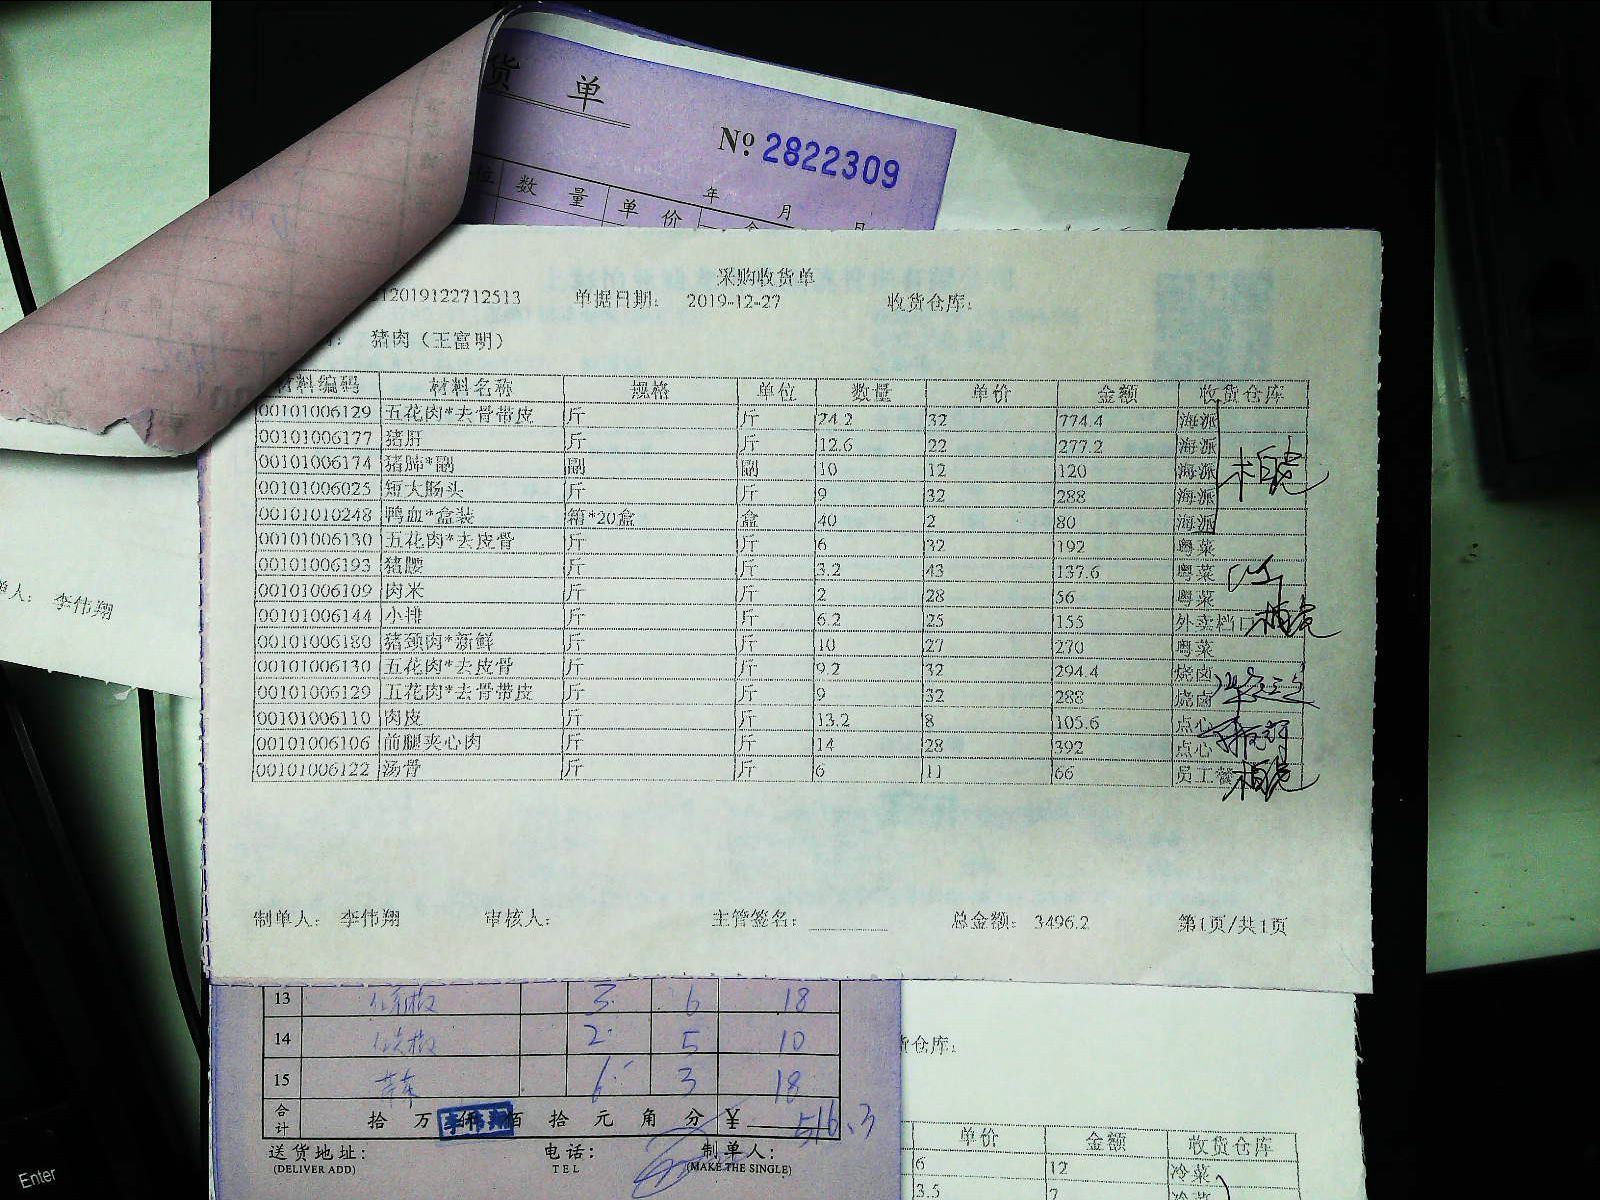 货 单
№ 2822309
年 月 日
位 数 量 单 价 金
采购收货单
12019122712513 单据日期： 2019-12-27 收货仓库：
猪肉（王富明）
材料编码 材料名称 规格 单位 数量 单价 金额 收货仓库
00101006129 五花肉*去骨带皮 斤 斤 24.2 32 774.4 海派
00101006177 猪肝 斤 斤 12.6 22 277.2 海派
00101006174 猪肺*副 副 副 10 12 120 海派
00101006025 短大肠头 斤 斤 9 32 288 海派
00101010248 鸭血*盒装 箱*20盒 盒 40 2 80 海派
00101006130 五花肉*去皮骨 斤 斤 6 32 192 粤菜
00101006193 猪腰 斤 斤 3.2 43 137.6 粤菜
00101006109 肉米 斤 斤 2 28 56 粤菜
00101006144 小排 斤 斤 6.2 25 155 外卖档口
00101006180 猪颈肉*新鲜 斤 斤 10 27 270 粤菜
00101006130 五花肉*去皮骨 斤 斤 9.2 32 294.4 烧卤
00101006129 五花肉*去骨带皮 斤 斤 9 32 288 烧卤
00101006110 肉皮 斤 斤 13.2 8 105.6 点心
00101006106 前腿夹心肉 斤 斤 14 28 392 点心
00101006122 汤骨 斤 斤 6 11 66 员工餐
制单人： 李伟翔 审核人： 主管签名： 总金额： 3496.2 第1页/共1页
单人： 李伟翔
13 3 6 18
14 2 5 10
15 6 3 18
合计 拾 万 佰 拾 元 角 分 ￥ 516.3
送货地址： 电话： 制单人：
(DELIVER ADD) TEL (MAKE THE SINGLE)
货仓库：
单价 金额 收货仓库
6 12 冷菜
3.5 7 冷菜
Enter